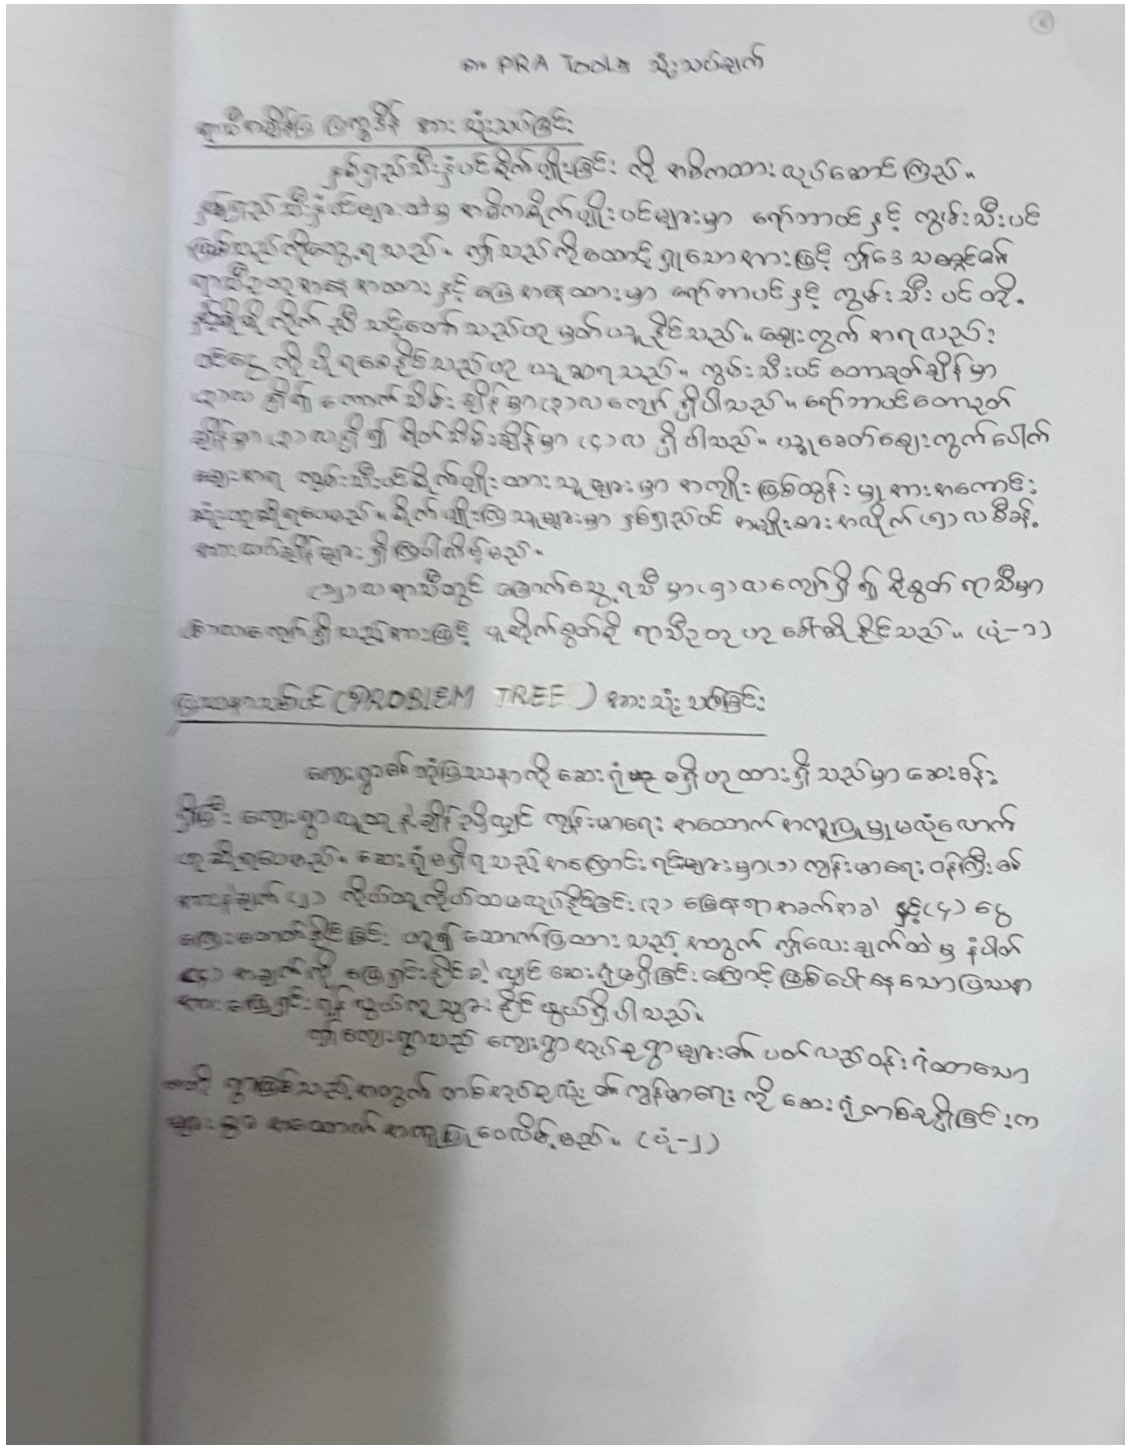 ၈။ PRA Tools သုံးသပ်ချက်
ရာသီအချိန်ပြ ပြက္ခဒိန် အား သုံးသပ်ခြင်း
နှစ်ရှည်သီးနှံပင်စိုက်ပျိုးခြင်း ကို အဓိကထား လုပ်ဆောင်ကြသည်။
နှစ်ရှည်သီးနှံပင်များထဲမှ အဓိကစိုက်ပျိုးပင်များမှာ ရော်ဘာပင်နှင့် ကွမ်းသီးပင်
ဖြစ်သည်ကိုတွေ့ရသည်။ ဤသည်ကိုထောင့်ရှုသောအားဖြင့် ဤဒေသ၏
ရာသီဥတုအနေအထားနှင့် မြေအနေထားမှာ ရော်ဘာပင်နှင့် ကွမ်းသီးပင်တို့
နှင့်မိုမိုကိုက်ညီ သင့်တော်သည်ဟု မှတ်ယူနိုင်သည်။ ဈေးကွက်အရလည်း
ဝင်ငွေကိုပိုရစေနိုင်သည်ဟု ယူဆရသည်။ ကွမ်းသီးပင် တောခုတ်ချိန်မှာ
(၃)လ ရှိ၍ ကောက်သိမ်းချိန်မှာ (၃)လကျော် ရှိပါသည်။ ရော်ဘာပင်တောခုတ်
ချိန်မှာ (၃)လရှိ၍ ရိတ်သိမ်းချိန်မှာ (၄)လ ရှိပါသည်။ ယခုခေတ်ဈေးကွက်ပေါက်
ဈေးအရ ကွမ်းသီးပင်စိုက်ပျိုးထားသူများမှာ အကျိုးဖြစ်ထွန်းမှုအားအကောင်း
ဆုံးဟုဆိုရပေမည်။ စိုက်ပျိုးကြသူများမှာ နှစ်ရှည်ပင် အမျိုးအစားအလိုက် (၅)လစီခန့်
အားလပ်ချိန်များ ရှိကြပါလိမ့်မည်။
(၁၂)လရာသီတွင် ခြောက်သွေ့ရာသီမှာ (၅)လကျော်ရှိ၍ စိုစွတ်ရာသီမှာ
(၆)လကျော်ရှိသည့်အားဖြင့် ပူအိုက်စွတ်စို ရာသီဥတုဟု ခေါ်ဆိုနိုင်သည်။ (ပုံ-၁)
ပြဿနာသစ်ပင် (PROBLEM TREE) အား သုံးသပ်ခြင်း
ကျေးရွာ၏ အဓိကပြဿနာကို ဆေးရုံ မရှိဟုထားရှိသည်မှာ ဆေးခန်း
ရှိပြီး ကျေးရွာလူထုနဲ့ချိန်ညှိလျှင် ကျန်းမာရေး အထောက်အကူပြုမှုမလုံလောက်
ဟုဆိုရပေမည်။ ဆေးရုံမရှိရသည့်အကြောင်းရင်းများမှာ (၁) ကျန်းမာရေးဝန်ကြီး၏
အားနည်းချက် (၂) ကိုယ်ထူကိုယ်ထမလုပ်နိုင်ခြင်း (၃) မြေနေရာအခက်အခဲ နှင့် (၄) ငွေ
ကြေးမတတ်နိုင်ခြင်း ဟူ၍ ထောက်ပြထားသည့်အတွက် ဤလေးချက်ထဲမှ နံပါတ်
(၄) အချက်ကို ဖြေရှင်းနိုင်ခဲ့လျှင် ဆေးရုံမရှိခြင်းကြောင့် ဖြစ်ပေါ်နေသောပြဿနာ
အားဖြေရှင်းရန် လွယ်ကူသွားနိုင်ဖွယ်ရှိပါသည်။
ဤကျေးရွာသည် ကျေးရွာအုပ်စုရွာများ၏ ပတ်လည်ဝန်းရံထားသော
ဗဟိုရွာဖြစ်သည့်အတွက် တစ်အုပ်စုလုံး၏ ကျန်းမာရေးကို ဆေးရုံတစ်ခုရှိခြင်းက
များစွာ အထောက်အကူပြုပေလိမ့်မည်။ (ပုံ-၂)